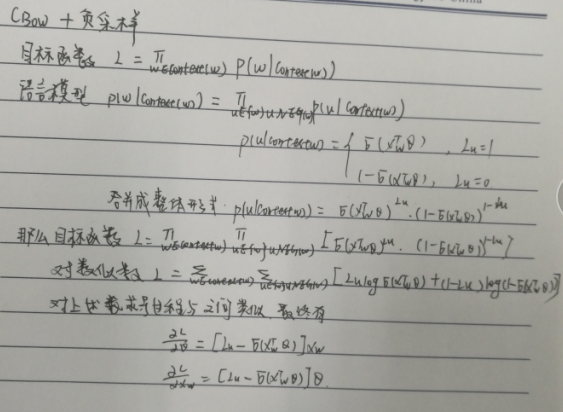 CBow + 负采样
目标函数 L = π_{w∈context(w)} p(w|context(w))
语言模型 p(w|context(w)) = π_{u∈{w}∪NEG(w)} p(u|context(w))
p(u|context(w)) = { σ(x_w^T θ), Lu=1
1-σ(x_w^T θ), Lu=0
合并成整体形式: p(u|context(w)) = σ(x_w^T θ)^{Lu} · (1-σ(x_w^T θ))^{1-Lu}
那么目标函数 L = π_{w∈context(w)} π_{u∈{w}∪NEG(w)} [σ(x_w^T θ)^{Lu} · (1-σ(x_w^T θ))^{1-Lu}]
对数似然 L = Σ_{w∈context(w)} Σ_{u∈{w}∪NEG(w)} [Lu log σ(x_w^T θ) + (1-Lu) log(1-σ(x_w^T θ))]
对上述函数求导 过程与之前类似 最终有
∂L/∂θ = [Lu - σ(x_w^T θ)] x_w
∂L/∂x_w = [Lu - σ(x_w^T θ)] θ